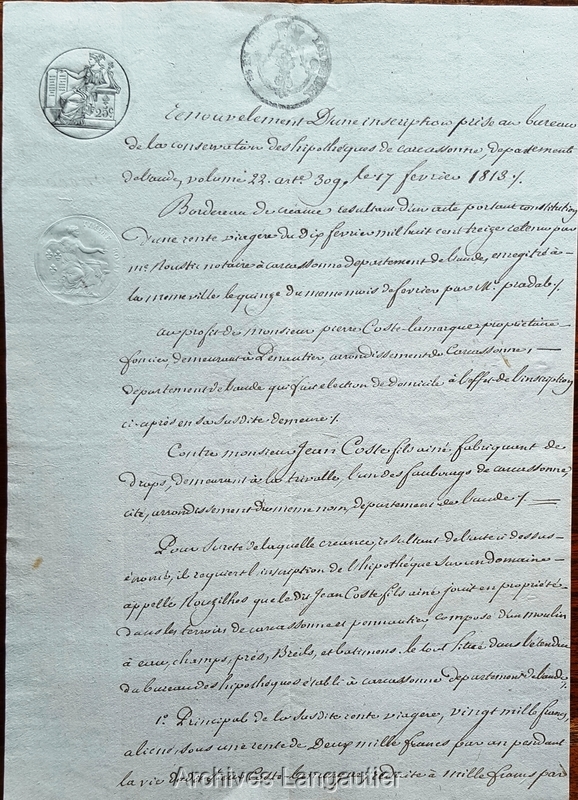 25c
Renouvelement D'une inscription prise au bureau
de la conservation des hipothéques de carcassonne, departement
de laude, volume 22. arte. 309, le 17 fevrier 1813 /.
Bordereau de créance resultant d'un acte portant constitution
d'une rente viagere du Dix fevrier mil huit cent treize retenu par
me. Rousti notaire à carcassonne departement de laude, enregitré à
la meme ville le quinze du meme mois de fevrier par Mr. pradal /.
au profit de monsieur pierre Coste-lamarque propriétaire
foncier, demeurant à Pennautier arrondissement de Carcassonne,
departement de laude qui fait election de domicile à l'effet de l'inscription
ci-après en sa susdite demeure /.
Contre monsieur Jean Coste fils ainé fabriquant de
draps, demeurant à la trivalle, l'un des faubourgs de carcassonne,
cité, arrondissement du meme nom, departement de laude /.
Pour sureté de laquelle creance, resultant de l'acte ci dessus
énoncé, il requiert l'inscription de l'hipothéque sur un domaine
appellé Rouzilhos que le dit Jean Coste fils ainé jouit en propriété
dans les terroirs de carcassonne et pennautier composé d'un moulin
à eau, champs, près, Breils, et batimens. le tout situé dans l'étendue
du bureau des hipothéques établi à carcassonne departement de laude /.
1o. Principal de la susdite rente viagere, vingt mille francs,
aliens, sous une rente de Deux mille francs par an pendant
la vie Coste lamarque mille francs par
Archives Langautier